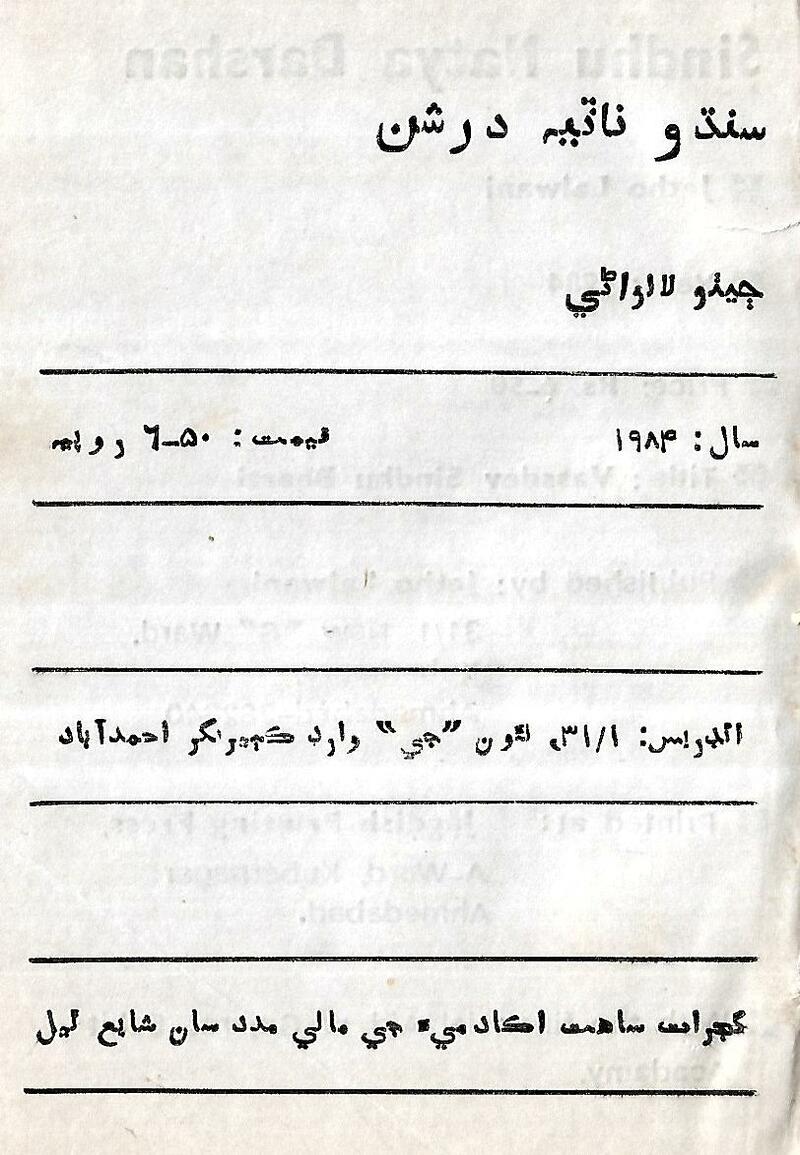 سنڌو ناٽيہ درشن
جيٺو لالواڻي
سال: ۱۹۸۴ قيمت: ۵۰–٦ روپيہ
ائڊريس: ۳۱/۱، نئون ”جي“ وارڊ ڪبيرنگر احمدآباد
گجرات ساهت اڪادميءَ جي مالي مدد سان شايع ٿيل